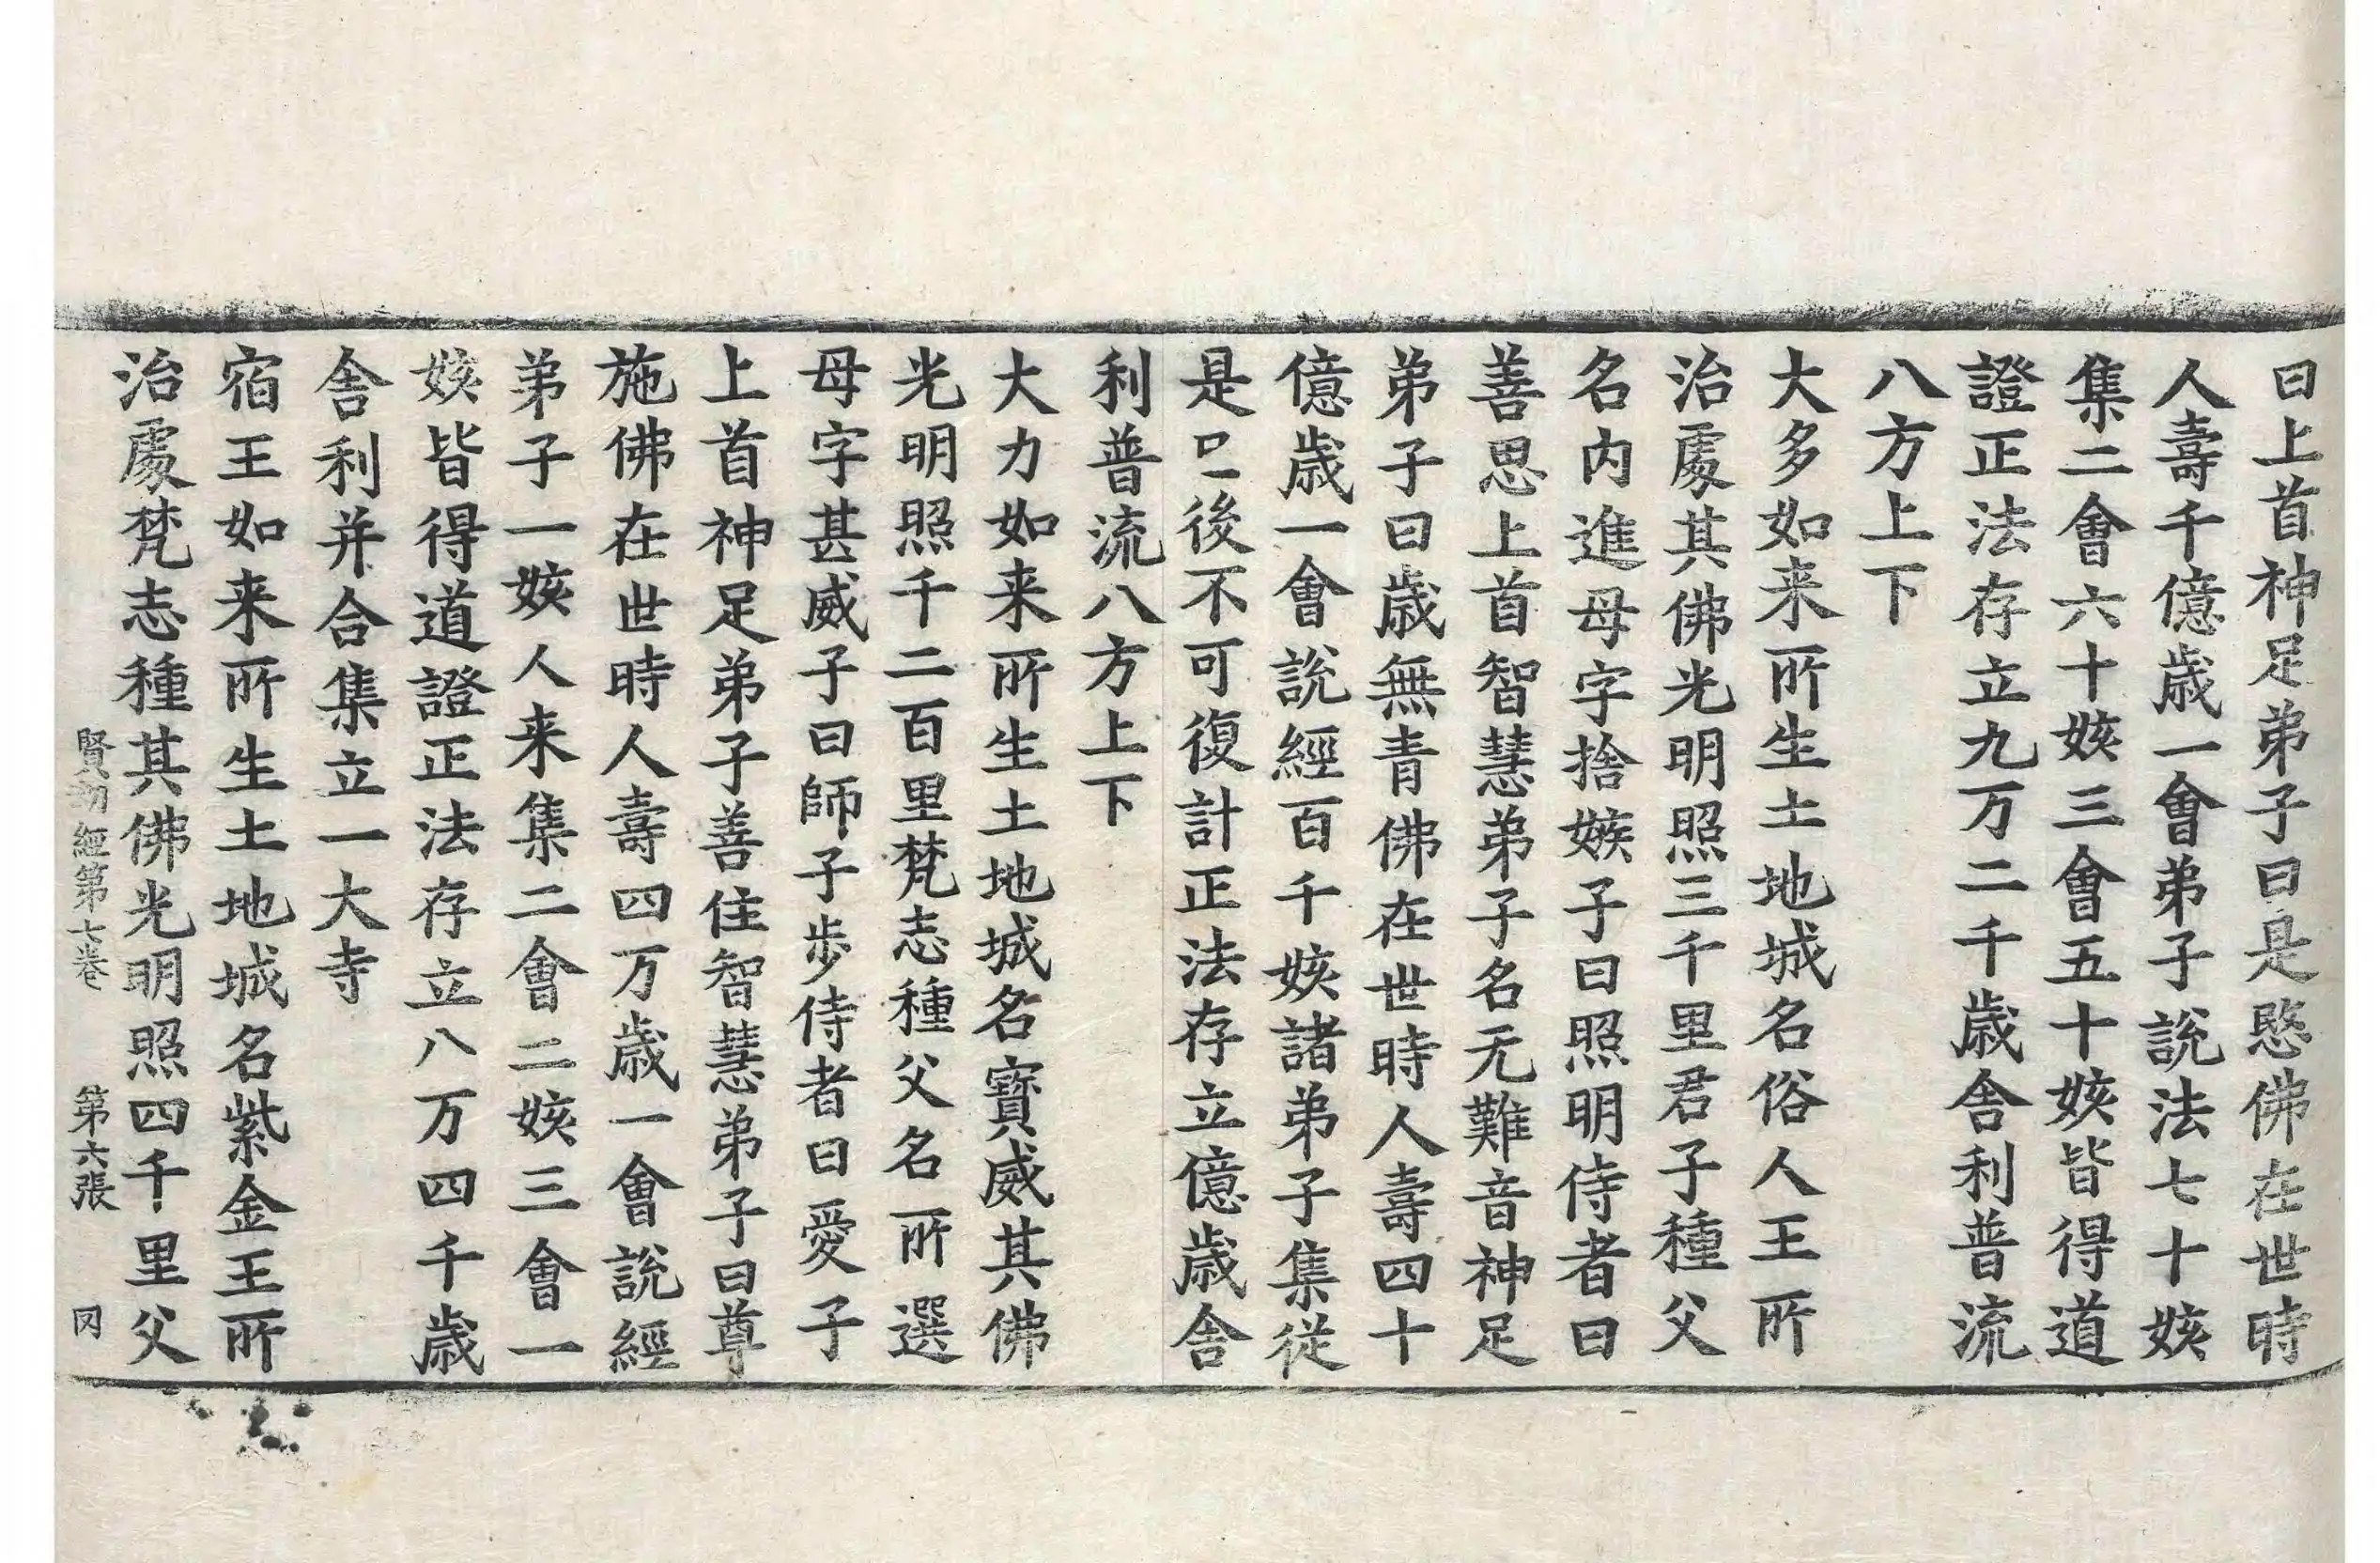 曰上首神足弟子曰是愍佛在世時
人壽千億歲一會弟子說法七十姟
集二會六十姟三會五十姟皆得道
證正法存立九万二千歲舍利普流
八方上下
大多如来所生土地城名俗人王所
治處其佛光明照三千里君子種父
名內進母字捨嫉子曰照明侍者曰
善思上首智慧弟子名无難音神足
弟子曰歲無青佛在世時人壽四十
億歲一會說經百千姟諸弟子集從
是已後不可復計正法存立億歲舍
利普流八方上下
大力如来所生土地城名寶威其佛
光明照千二百里梵志種父名所選
母字甚威子曰師子步侍者曰愛子
上首神足弟子善住智慧弟子曰尊
施佛在世時人壽四万歲一會說經
弟子一姟人来集二會二姟三會一
姟皆得道證正法存立八万四千歲
舍利并合集立一大寺
宿王如来所生土地城名紫金王所
治處梵志種其佛光明照四千里父
賢劫經第七卷 第六張